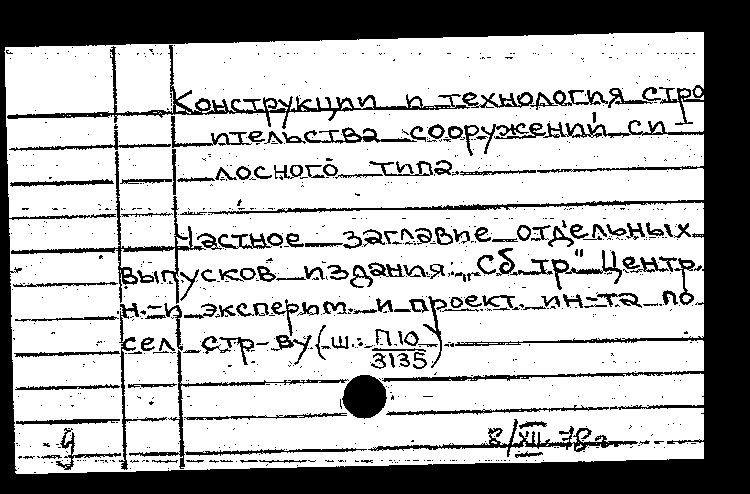 Конструкции и технология стро
ительства сооружений си-
лосного типа
Частное заглавие отдельных
выпусков издания: „Сб. тр." Центр.
н.-и эксперим. и проект. ин-та по
сел. стр-ву (ш.: П10
3135)
g
8/XII 78 г.